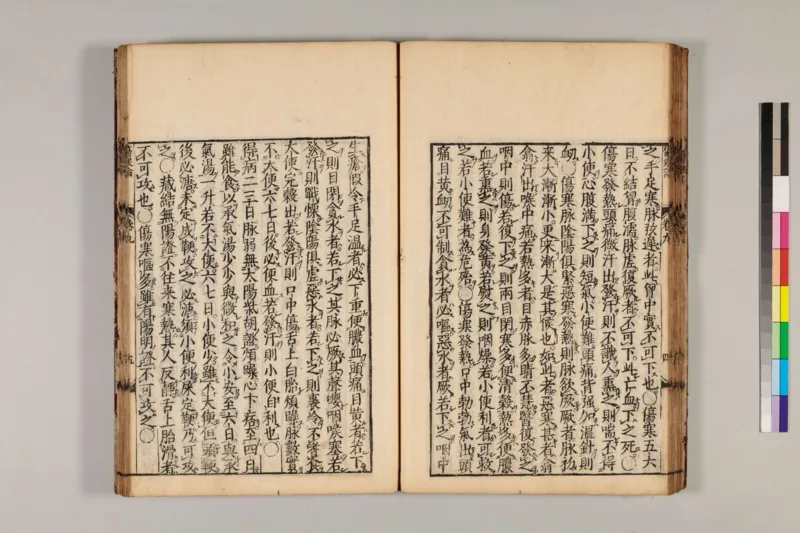 之手足寒脉技達者此胷中實不可下也○傷寒五六
日不結胷腹濡脉虛復厥者不可下此亡血下之死○
傷寒發熱頭痛微汗出發汗則不識人熏之則喘不得
小便心腹滿下之則短氣小便難頭痛背强加溫鍼則
衂○傷寒脉陰陽俱緊惡寒發熱則脉欲厥厥者脉初
來大漸漸小更來漸漸大是其候也如此者惡寒甚者翕
翕汗出喉中痛若熱多者目赤脉多睛不慧醫復發之
咽中則傷若復下之則兩目閉寒多便清穀熱多便膿
血若熏之則身發黄若熨之則咽燥若小便利者可救
之若小便難者爲危殆○傷寒發熱口中勃勃氣出頭
痛目黄衂不可制貪水者必嘔惡水者厥若下之咽中
生瘡假令手足溫者必下重便膿血頭痛目黄者若下
之則目閉貪水者若下之其脉必厥其聲嚶咽喉塞若
發汗則戰慄陰陽俱虛惡水者若下之則裏冷不嗜食
大便完穀出若發汗則口中傷舌上白胎煩躁脉數實
不大便六七日後必便血若發汗則小便自利也○
得病二三日脉弱無太陽柴胡證煩躁心下痞至四日
雖能食以承氣湯少少與微和之令小安至六日與承
氣湯一升若不大便六七日小便少雖不大便但頭鞕
後必溏未定成鞕攻之必溏須小便利屎定鞕乃可攻
之○藏結無陽證不往來寒熱其人反靜舌上胎滑者
不可攻也○傷寒嘔多雖有陽明證不可攻之○